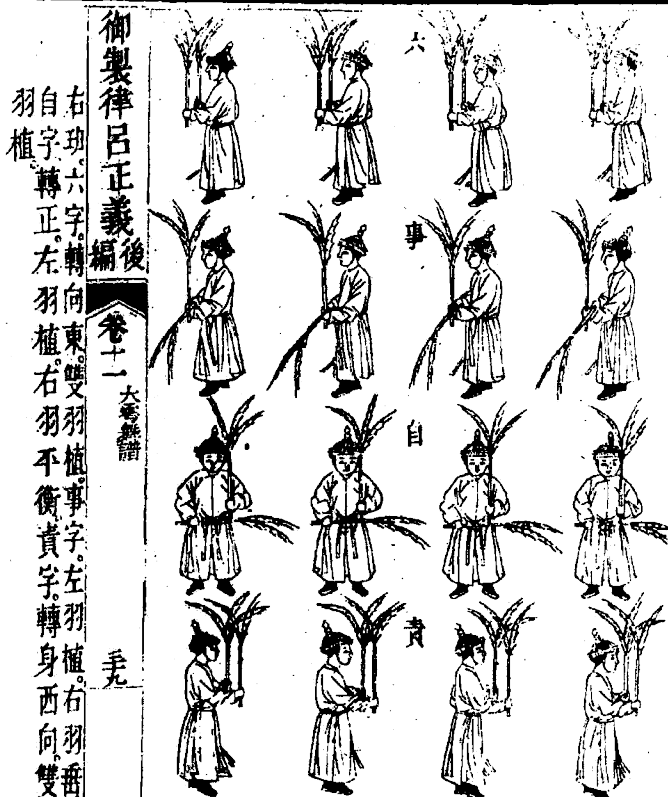 六
事
自
責
御製律呂正義後編
卷十一
大雩舞譜
右班。六字。轉向東。雙羽植。事字。左羽植。右羽垂。
自字。轉正。左羽植。右羽平衡。責字。轉身西向。雙
羽植。